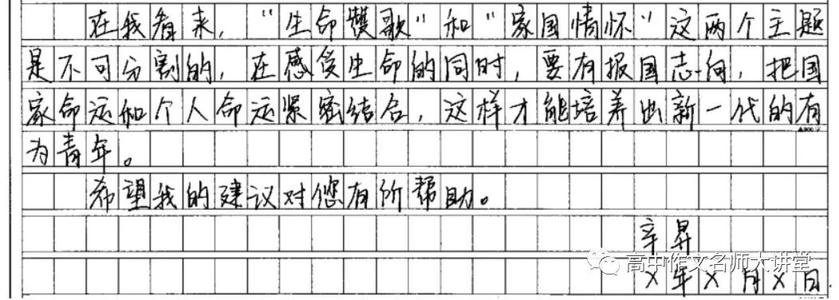 在我看来，“生命赞歌”和“家国情怀”这两个主题
是不可分割的，在感负生命的同时，要有报国志向，把国
家命运和个人命运紧密结合，这样才能培养出新一代的有
为青年。
希望我的建议对您有所帮助。
辛昇
X年X月X日
高中作文名师大讲堂